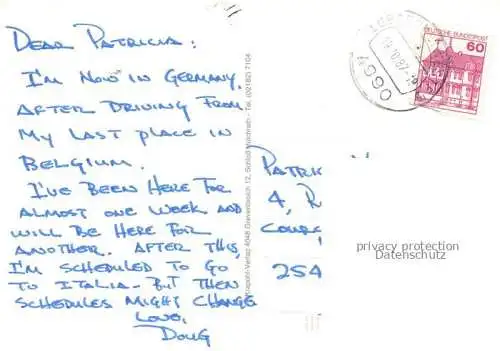 DEAR PATRICIA:
I'M NOW IN GERMANY,
AFTER DRIVING FROM
MY LAST PLACE IN
BELGIUM.
I'VE BEEN HERE FOR
ALMOST ONE WEEK AND
WILL BE HERE FOR
ANOTHER. AFTER THIS,
I'M SCHEDULED TO GO
TO ITALIA - BUT THEN
SCHEDULES MIGHT CHANGE
LOVE,
DOUG
4048 Grevenbroich 12, Schloß Hülchrath - Tel. (02182) 7104
DEUTSCHE BUNDESPOST
60
4990
PATRIC
4, R
COUR
254
privacy protection
Datenschutz